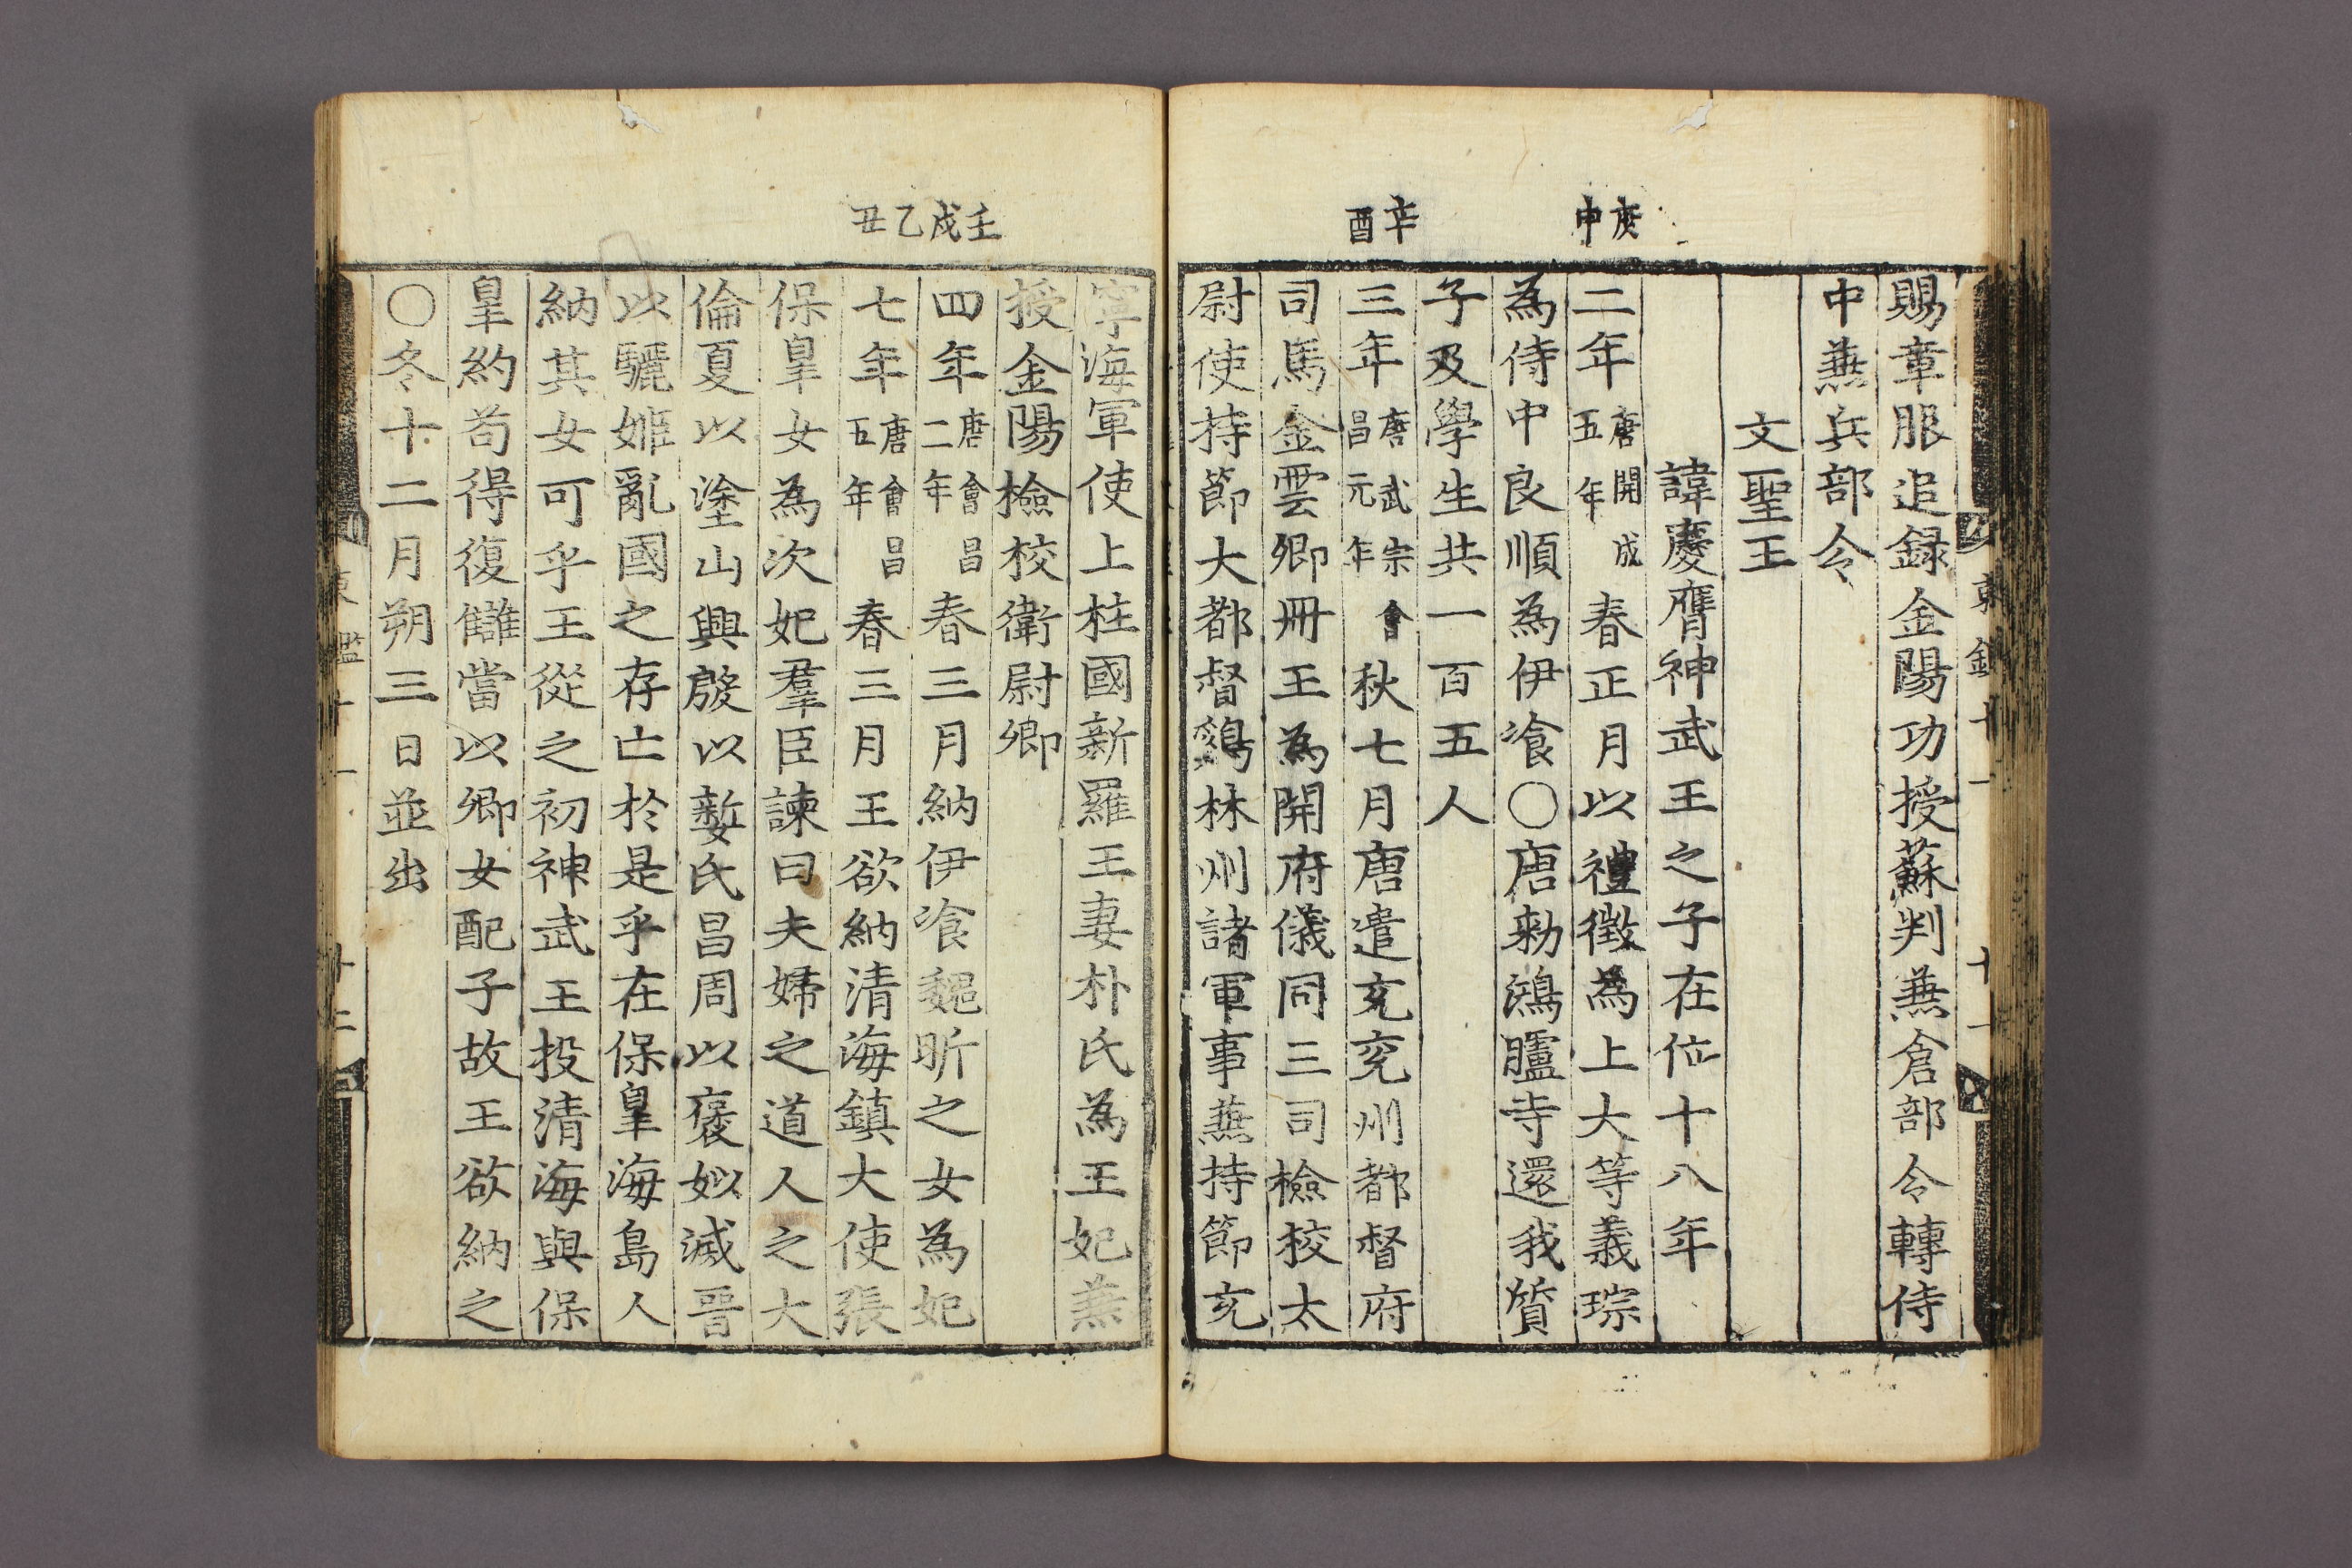 賜章服追録金陽功授蘇判蕪倉部令轉侍
中蕪兵部令
文聖王
諱慶膺神武王之子在位十八年
庚申
二年唐開成五年春正月以禮徴為上大等義琮
為侍中良順為伊飡〇唐勑鴻臚寺還我質
子及學生共一百五人
辛酉
三年唐武宗會昌元年秋七月唐遣兗兗州都督府
司馬金雲卿冊王為開府儀同三司檢校太
尉使持節大都督鷄林州諸軍事蕪持節充
東鑑十一 十一
寧海軍使上柱國新羅王妻朴氏為王妃蕪
授金陽檢校衛尉卿
壬戌
四年唐會昌二年春三月納伊飡魏昕之女為妃
乙丑
七年唐會昌五年春三月王欲納清海鎮大使張
保皐女為次妃羣臣諫曰夫婦之道人之大
倫夏以塗山興殷以㜪氏昌周以褒姒滅晉
以驪姬亂國之存亡於是乎在保皐海島人
納其女可乎王從之初神武王投清海與保
皐約苟得復讎當以卿女配子故王欲納之
〇冬十二月朔三日並出
東鑑十一 十二